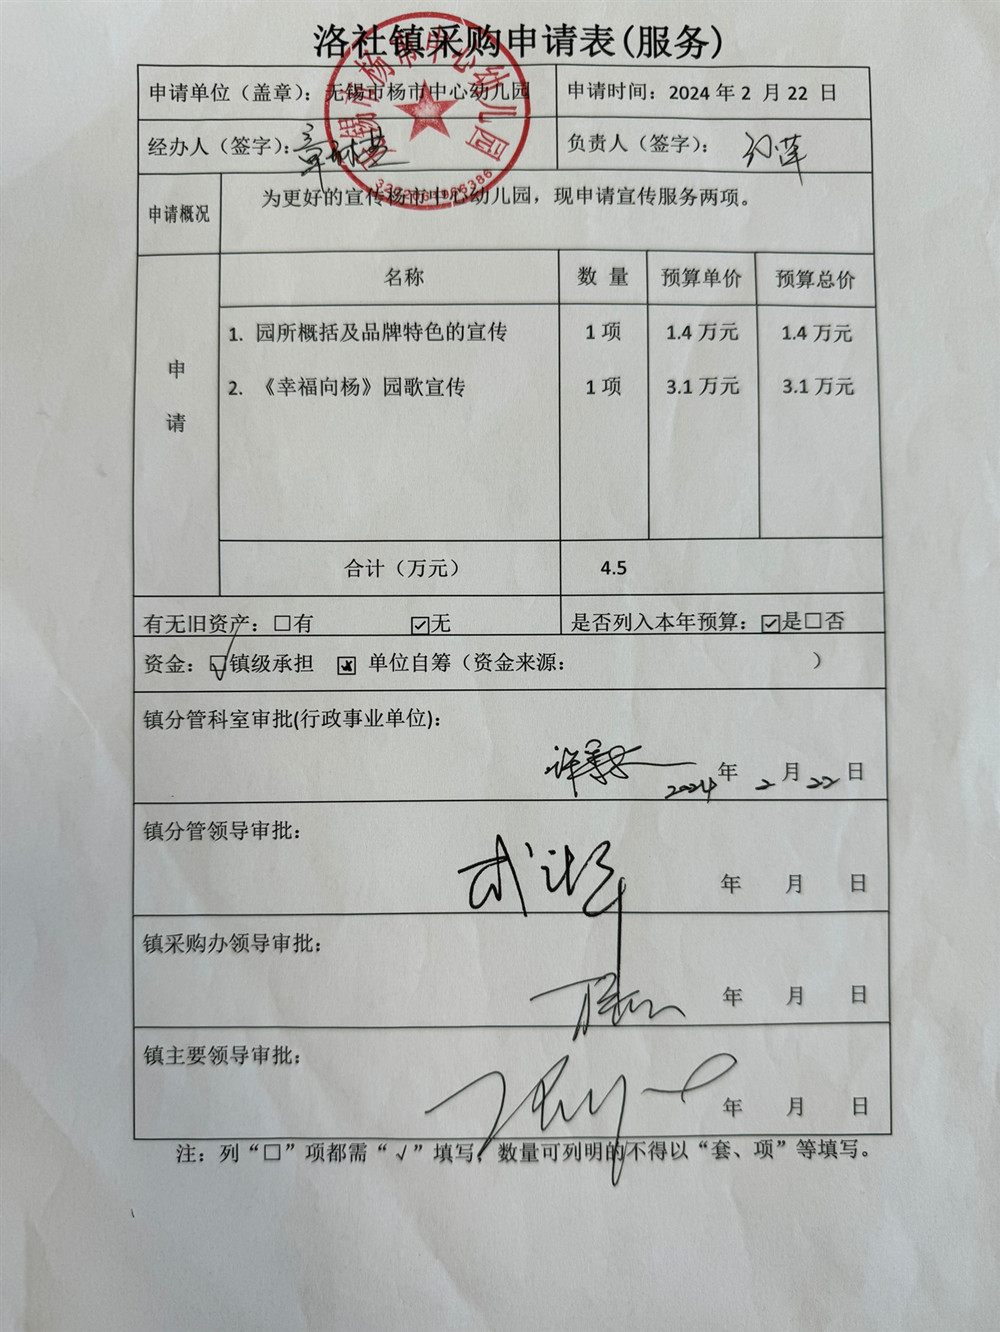 洛社镇采购申请表(服务)
申请单位（盖章）：无锡市杨市中心幼儿园 申请时间：2024年2月22日
经办人（签字）： 负责人（签字）：
申请概况 为更好的宣传杨市中心幼儿园，现申请宣传服务两项。
申请
名称 数量 预算单价 预算总价
1. 园所概括及品牌特色的宣传 1项 1.4万元 1.4万元
2. 《幸福向杨》园歌宣传 1项 3.1万元 3.1万元
合计（万元） 4.5
有无旧资产：□有 ☑无 是否列入本年预算：☑是□否
资金：☑镇级承担 单位自筹（资金来源： ）
镇分管科室审批(行政事业单位)：
2024年2月22日
镇分管领导审批：
年 月 日
镇采购办领导审批；
年 月 日
镇主要领导审批；
年 月 日
注：列“□”项都需“√”填写，数量可列明的不得以“套、项”等填写。